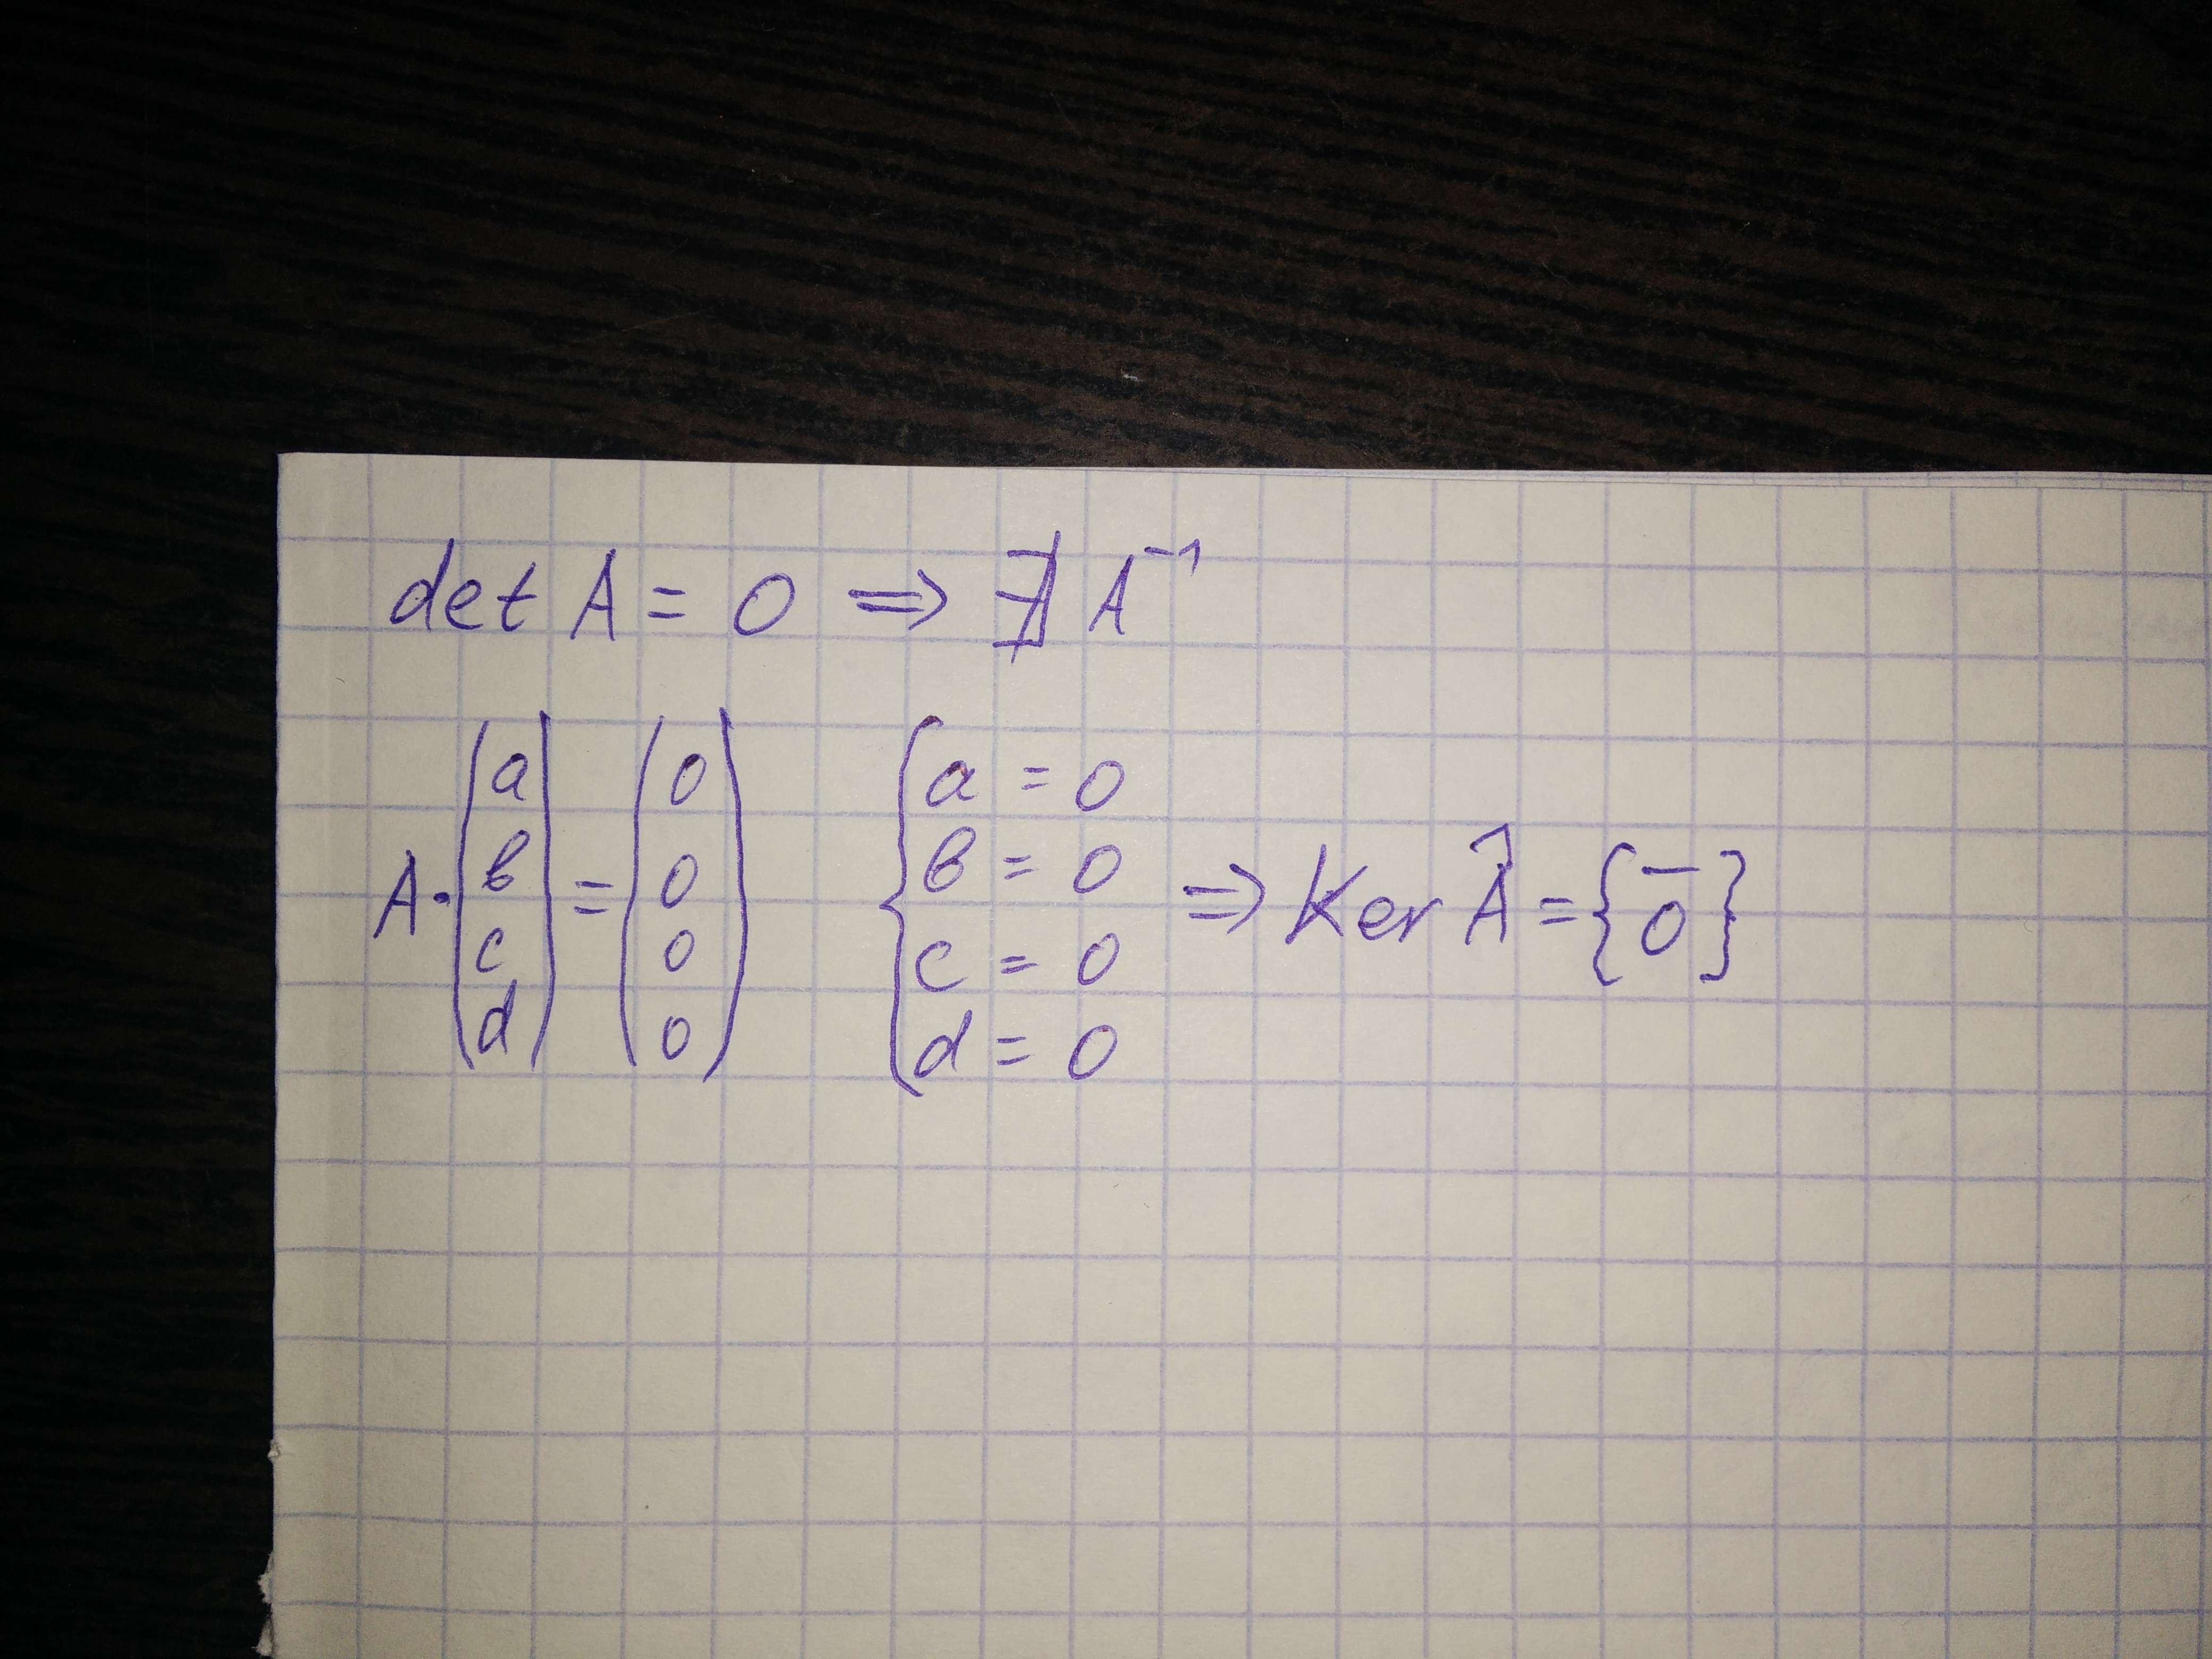 det A = 0 ⇒ ∄ A⁻¹
A · (a b c d) = (0 0 0 0) { a = 0 b = 0 c = 0 d = 0 ⇒ Ker Â = {0̄}